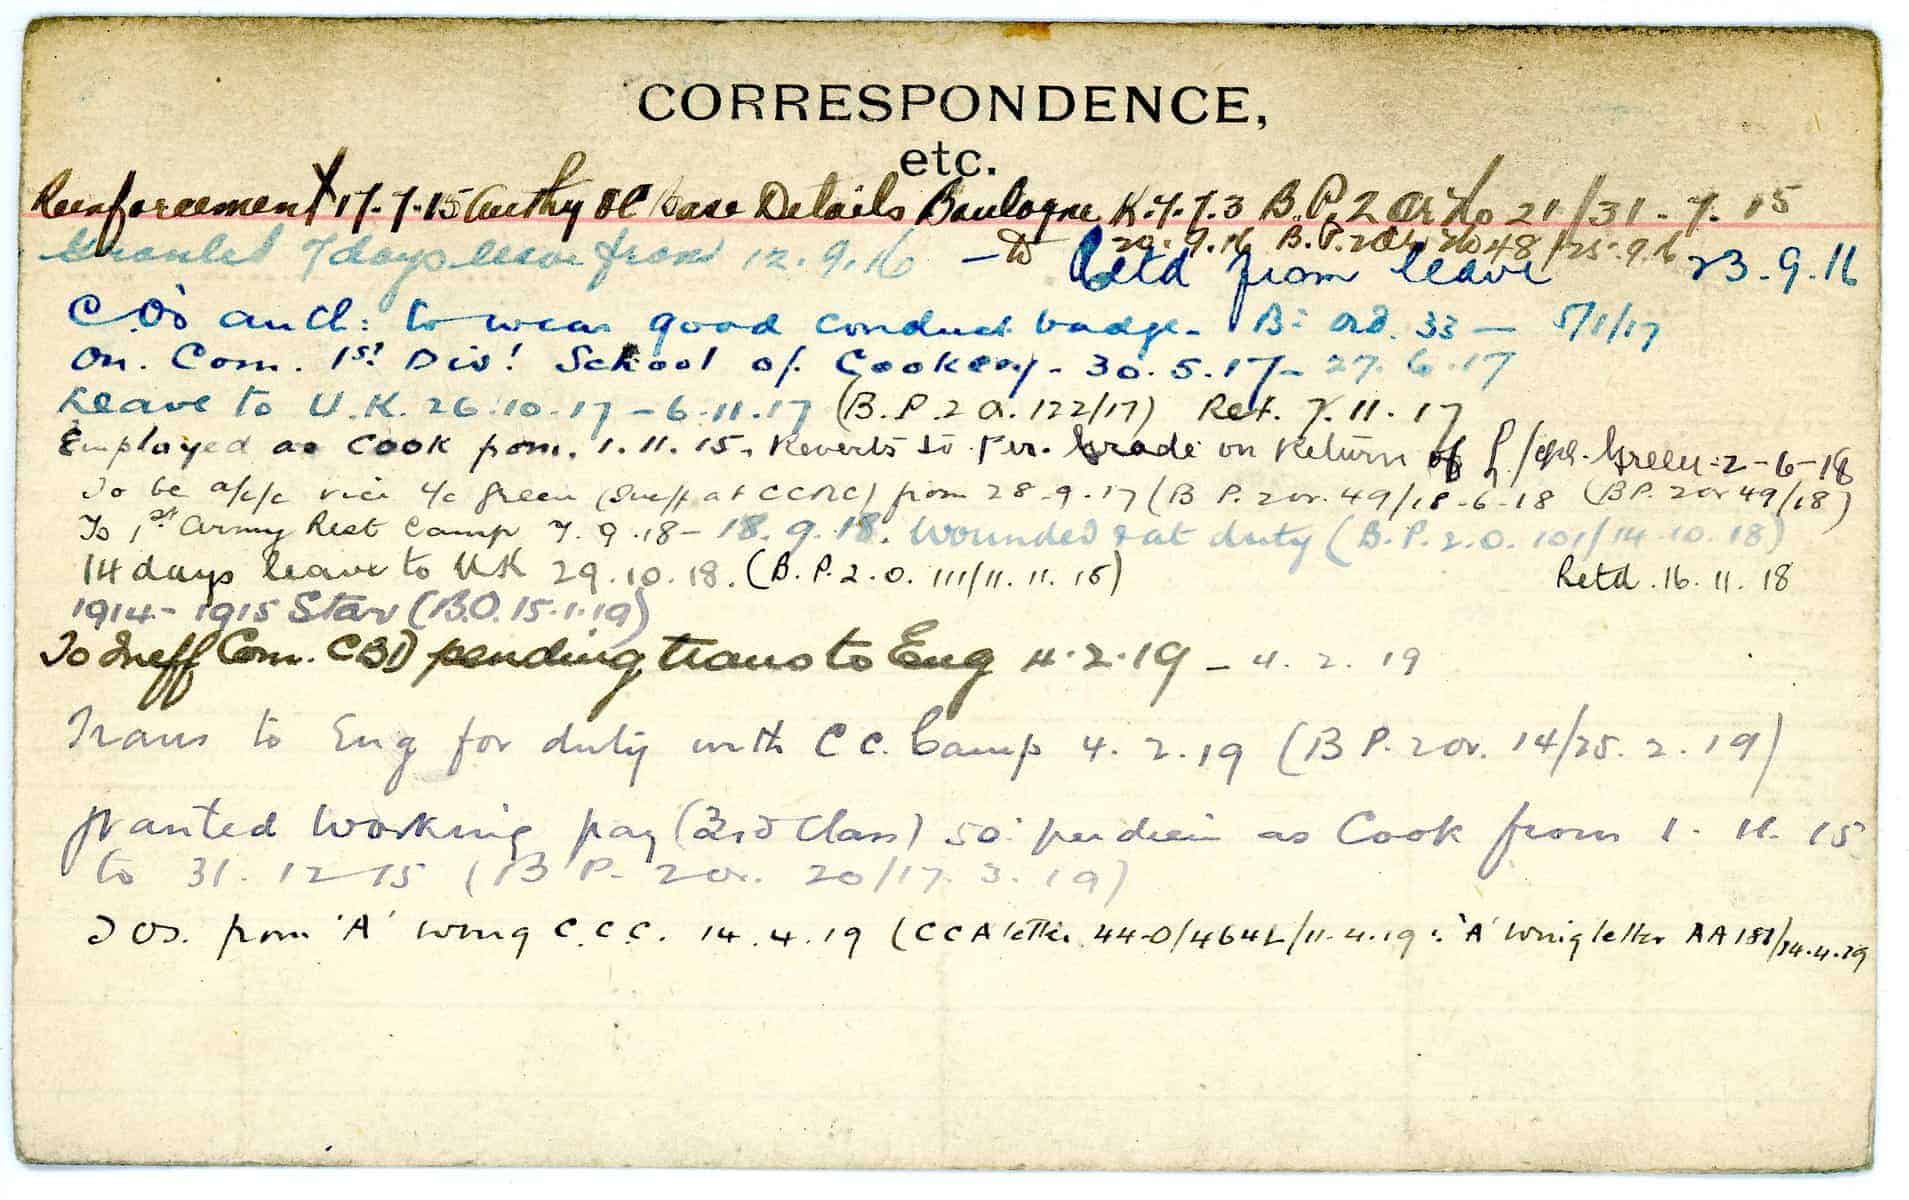 CORRESPONDENCE,
etc.
Reinforcement 17.7.15 Authy OC Base Details Boulogne K.7.7.3 B.P.2 Or No 21/31.7.15
Granted 7 days leave from 12.9.16 - to 20.9.16 B.P.2 Or No 48/25.9.16
Retd from leave 23.9.16
C.O's auth: to wear good conduct badge. Bn Ord. 33 — 5/1/17
On. Com. 1st Div! School of Cookery - 30.5.17 - 27.6.17
Leave to U.K. 26.10.17 - 6.11.17 (B.P.2 O. 122/17) Ret. 7.11.17
Employed as Cook from. 1.11.15. Reverts to Per. Grade on Return of L/Cpl. Green 2-6-18
To be a/c/c vice L/c Green (Sueff at CCRC) from 28-9-17 (B P. 2 or. 49/18-6-18 (BP. 2 or 49/18)
To 1st Army Rest Camp 7.9.18 - 18.9.18. Wounded & at duty (B.P.2.O. 101/14.10.18)
14 days leave to UK 29.10.18. (B.P.2.O. 111/11.11.18) Retd. 16.11.18
1914-1915 Star (B.O. 15.1.19)
To Ineff Com. CBD pending trans to Eng 4.2.19 - 4.2.19
Trans to Eng for duty with C C. Camp 4.2.19 (B P. 2 or. 14/25.2.19)
Granted Working pay (3rd Class) 50¢ per diem as Cook from 1.11.15
to 31.12.15 (B P. 2 or. 20/17.3.19)
TOS. from 'A' wing C.C.C. 14.4.19 (CCA letter 44-0/464L/11.4.19 : 'A' Wing letter AA 181/14.4.19